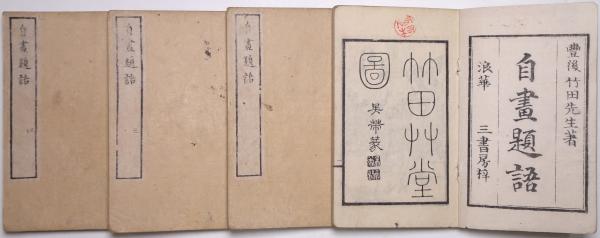 豐後 竹田先生著
自畫題語
浪華 三書房梓
竹田艸堂
圖
自畫題語
自畫題語 三
自畫題語